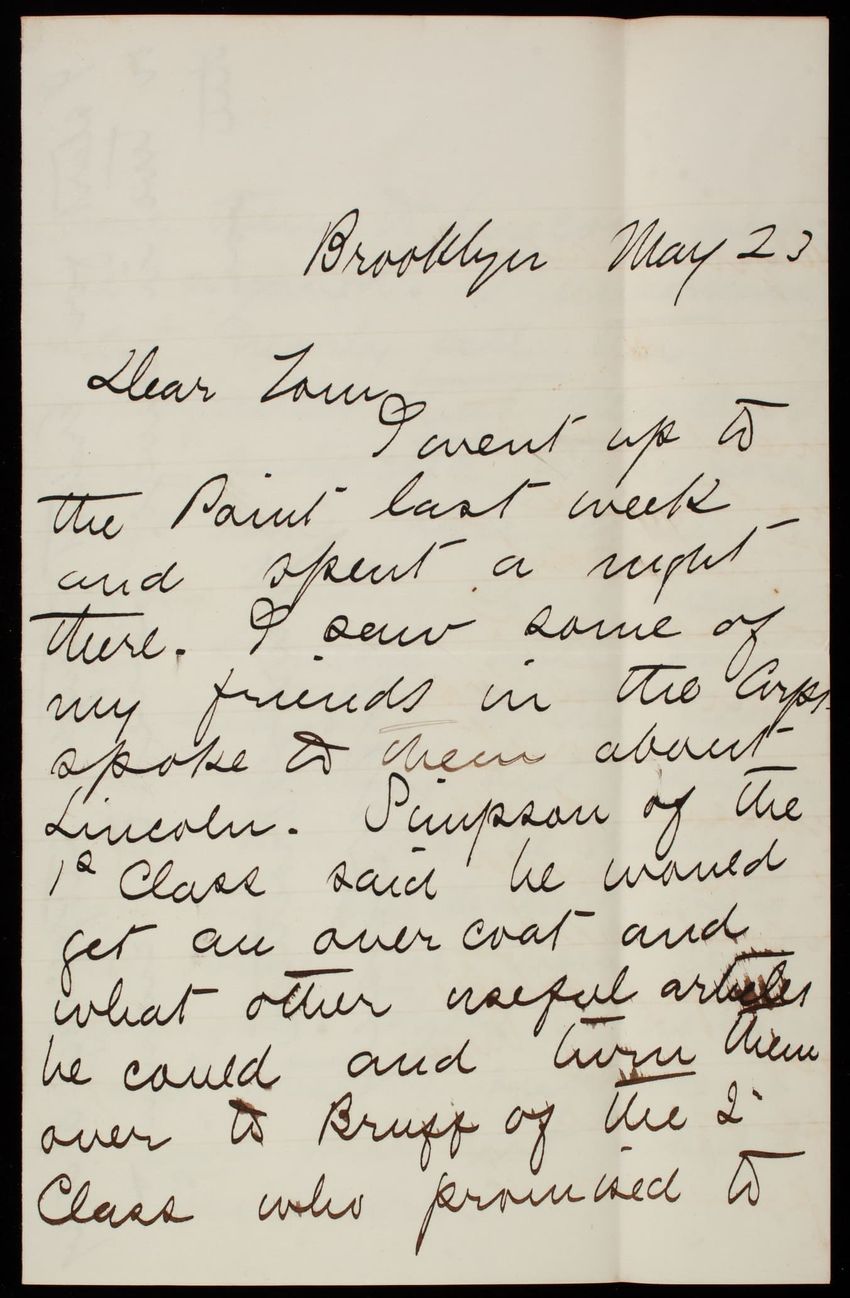 Brooklyn May 23
Dear Tom
I went up to
the Point last week
and spent a night
there. I saw some of
my friends in the Corps
spoke to them about
Lincoln. Simpson of the
1st Class said he would
get an over coat and
what other useful articles
he could and turn them
over to Bruff of the 2d
Class who promised to